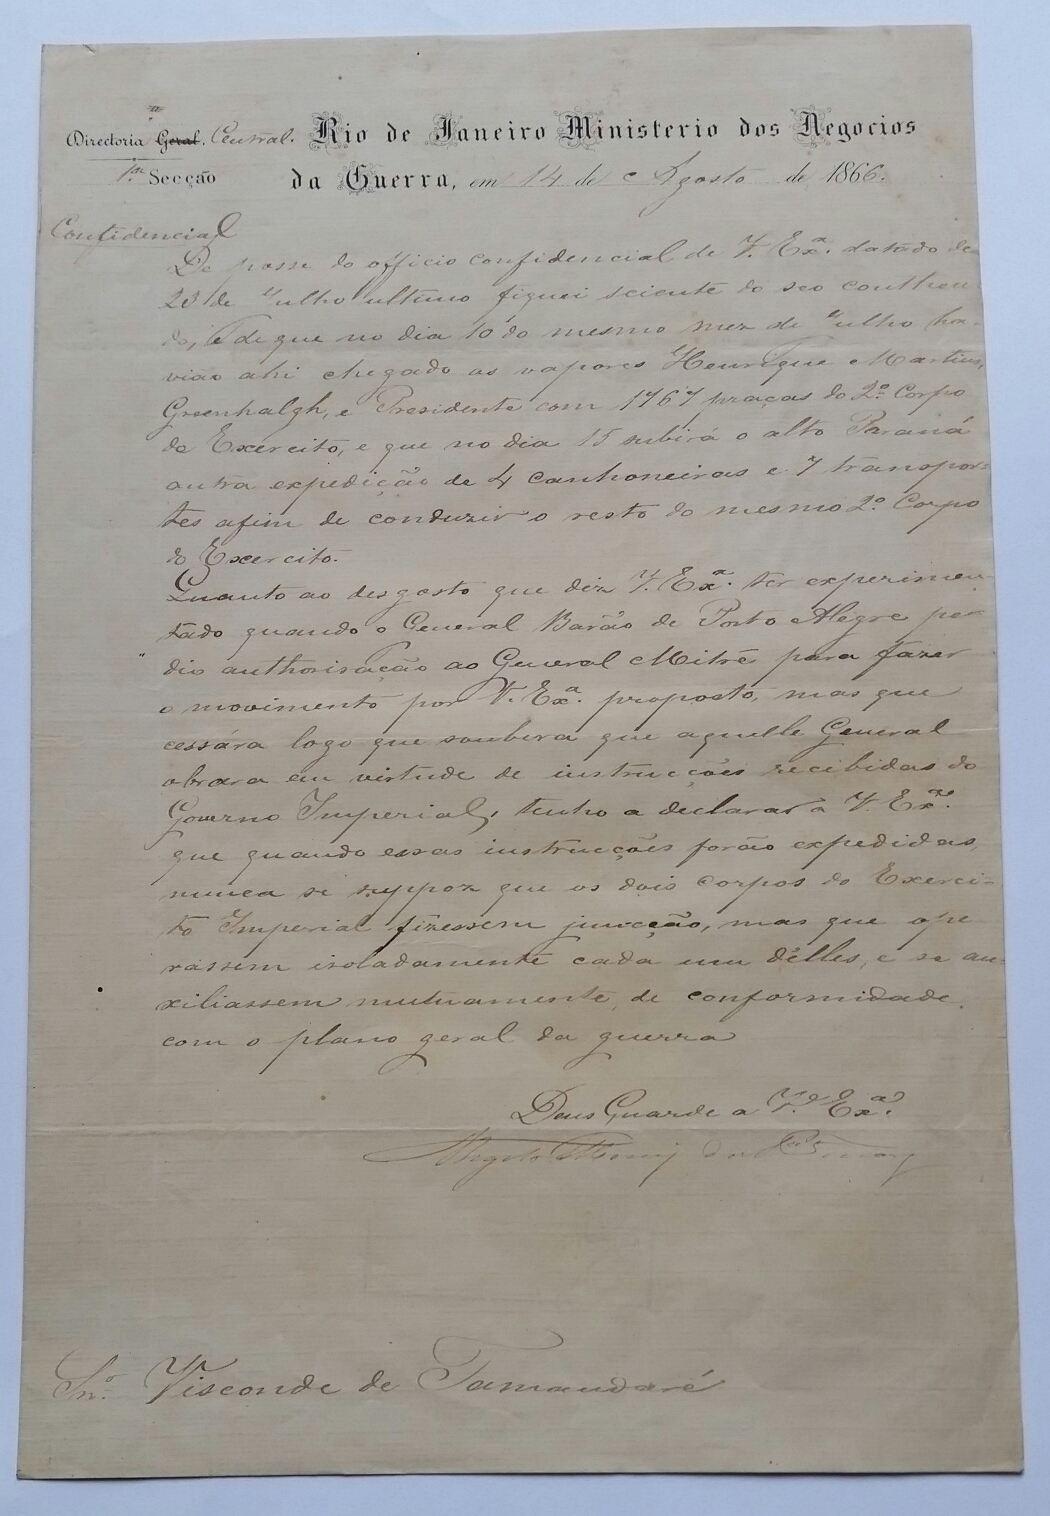 Directoria Geral. Central. Rio de Janeiro Ministerio dos Negocios
1.ª Secção da Guerra, em 14 de Agosto de 1866.
Confidencial
De posse do officio confidencial de V. Ex.ª datado de
20 de Julho ultimo fiquei sciente do seo contheu
do, e de que no dia 10 do mesmo mez de Julho ha-
vião ahi chegado as vapores Henrique Martins,
Greenhalgh, e Presidente com 1767 praças do 2.º Corpo
do Exercito, e que no dia 15 subirá o alto Paraná
outra expedição de 4 canhoneiras e 7 transpor-
tes afim de conduzir o resto do mesmo 2.º Corpo
do Exercito.
Quanto ao desgosto que diz V. Ex.ª ter experimen-
tado quando o General Barão de Porto Alegre pe-
dio authorisação ao General Mitre para fazer
o movimento por V. Ex.ª proposto, mas que
cessára logo que soubera que aquelle General
obrara em virtude de instrucções recibidas do
Governo Imperial, tenho a declarar a V. Ex.ª
que quando essas instrucções forão expedidas,
nunca se suppoz que os dois corpos do Exerci-
to Imperial fizessem juncção, mas que ope
rassem isoladamente cada um d'elles, e se au-
xiliassem mutuamente, de conformidade
com o plano geral da guerra
Deus Guarde a V. Ex.ª
Angelo Moniz da
Snr. Visconde de Tamandaré